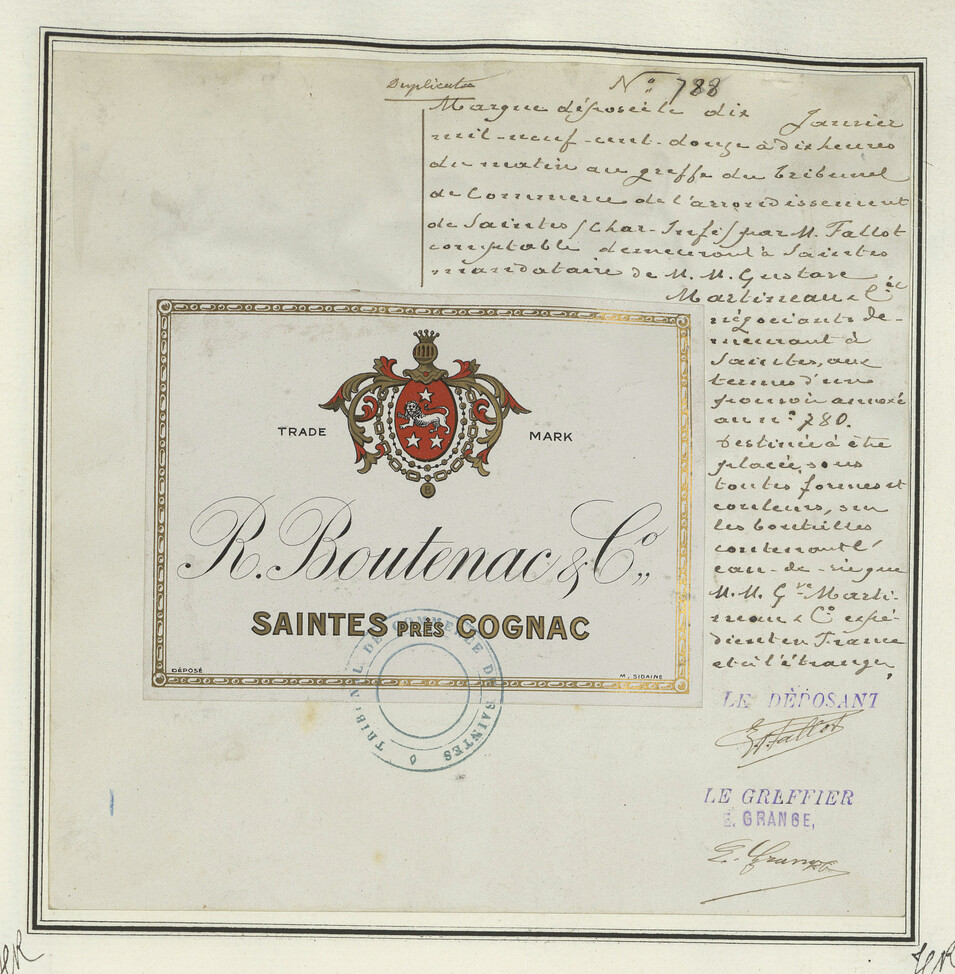 Duplicata
N° 788
Marque déposée le dix Janvier
mil-neuf-cent-douze à dix heures
du matin au greffe du Tribunal
de Commerce de l'arrondissement
de Saintes (Char-Infé) par M. Fallot
comptable demeurant à Saintes
mandataire de M.M. Gustave
Martineau & Cie
négociants de-
meurant à
Saintes, aux
termes d'un
pouvoir annexé
au n° 780.
Destinée à être
placée, sous
toutes formes et
couleurs, sur
les bouteilles
contenant l'
eau-de-vie que
M.M. Gve Marti-
neau & Co expé-
dient en France
et à l'étranger,
TRADE MARK
B
R. Boutenac & Co,,
SAINTES PRÈS COGNAC
DÉPOSÉ
M. SIDAINE
TRIBUNAL DE COMMERCE DE SAINTES
LE DÉPOSANT
Fallot
LE GREFFIER
E. GRANGE,
E. Grange